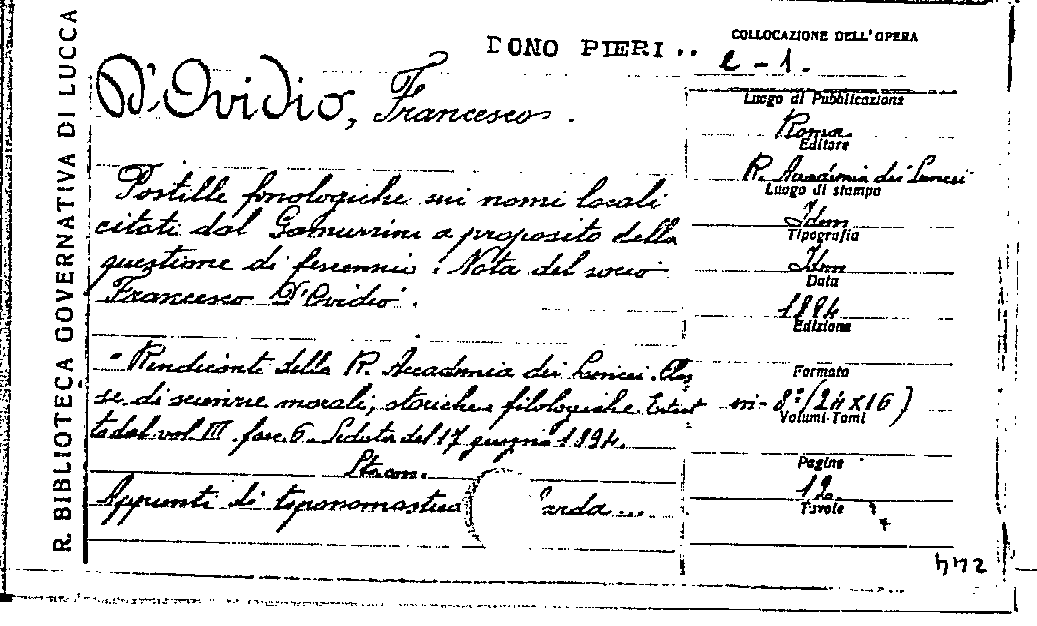 R. BIBLIOTECA GOVERNATIVA DI LUCCA
DONO PIERI..
COLLOCAZIONE DELL'OPERA
e-1.
D'Ovidio, Francesco.
Luogo di Pubblicazione
Roma
Editore
R. Accademia dei Lincei
Luogo di stampa
Idem
Tipografia
Idem
Data
1894
Edizione
Formato
in-8°(24x16)
Volumi-Tomi
Pagine
12.
Tavole
Postille fonologiche sui nomi locali
citati dal Gamurrini a proposito della
questione di fescennio. Nota del socio
Francesco D'Ovidio.
- Rendiconti della R. Accademia dei Lincei. Clas
se di scienze morali, storiche e filologiche. Estrat
to dal vol. III. fasc. 6. Seduta del 17 giugno 1894.
Appunti di toponomastica